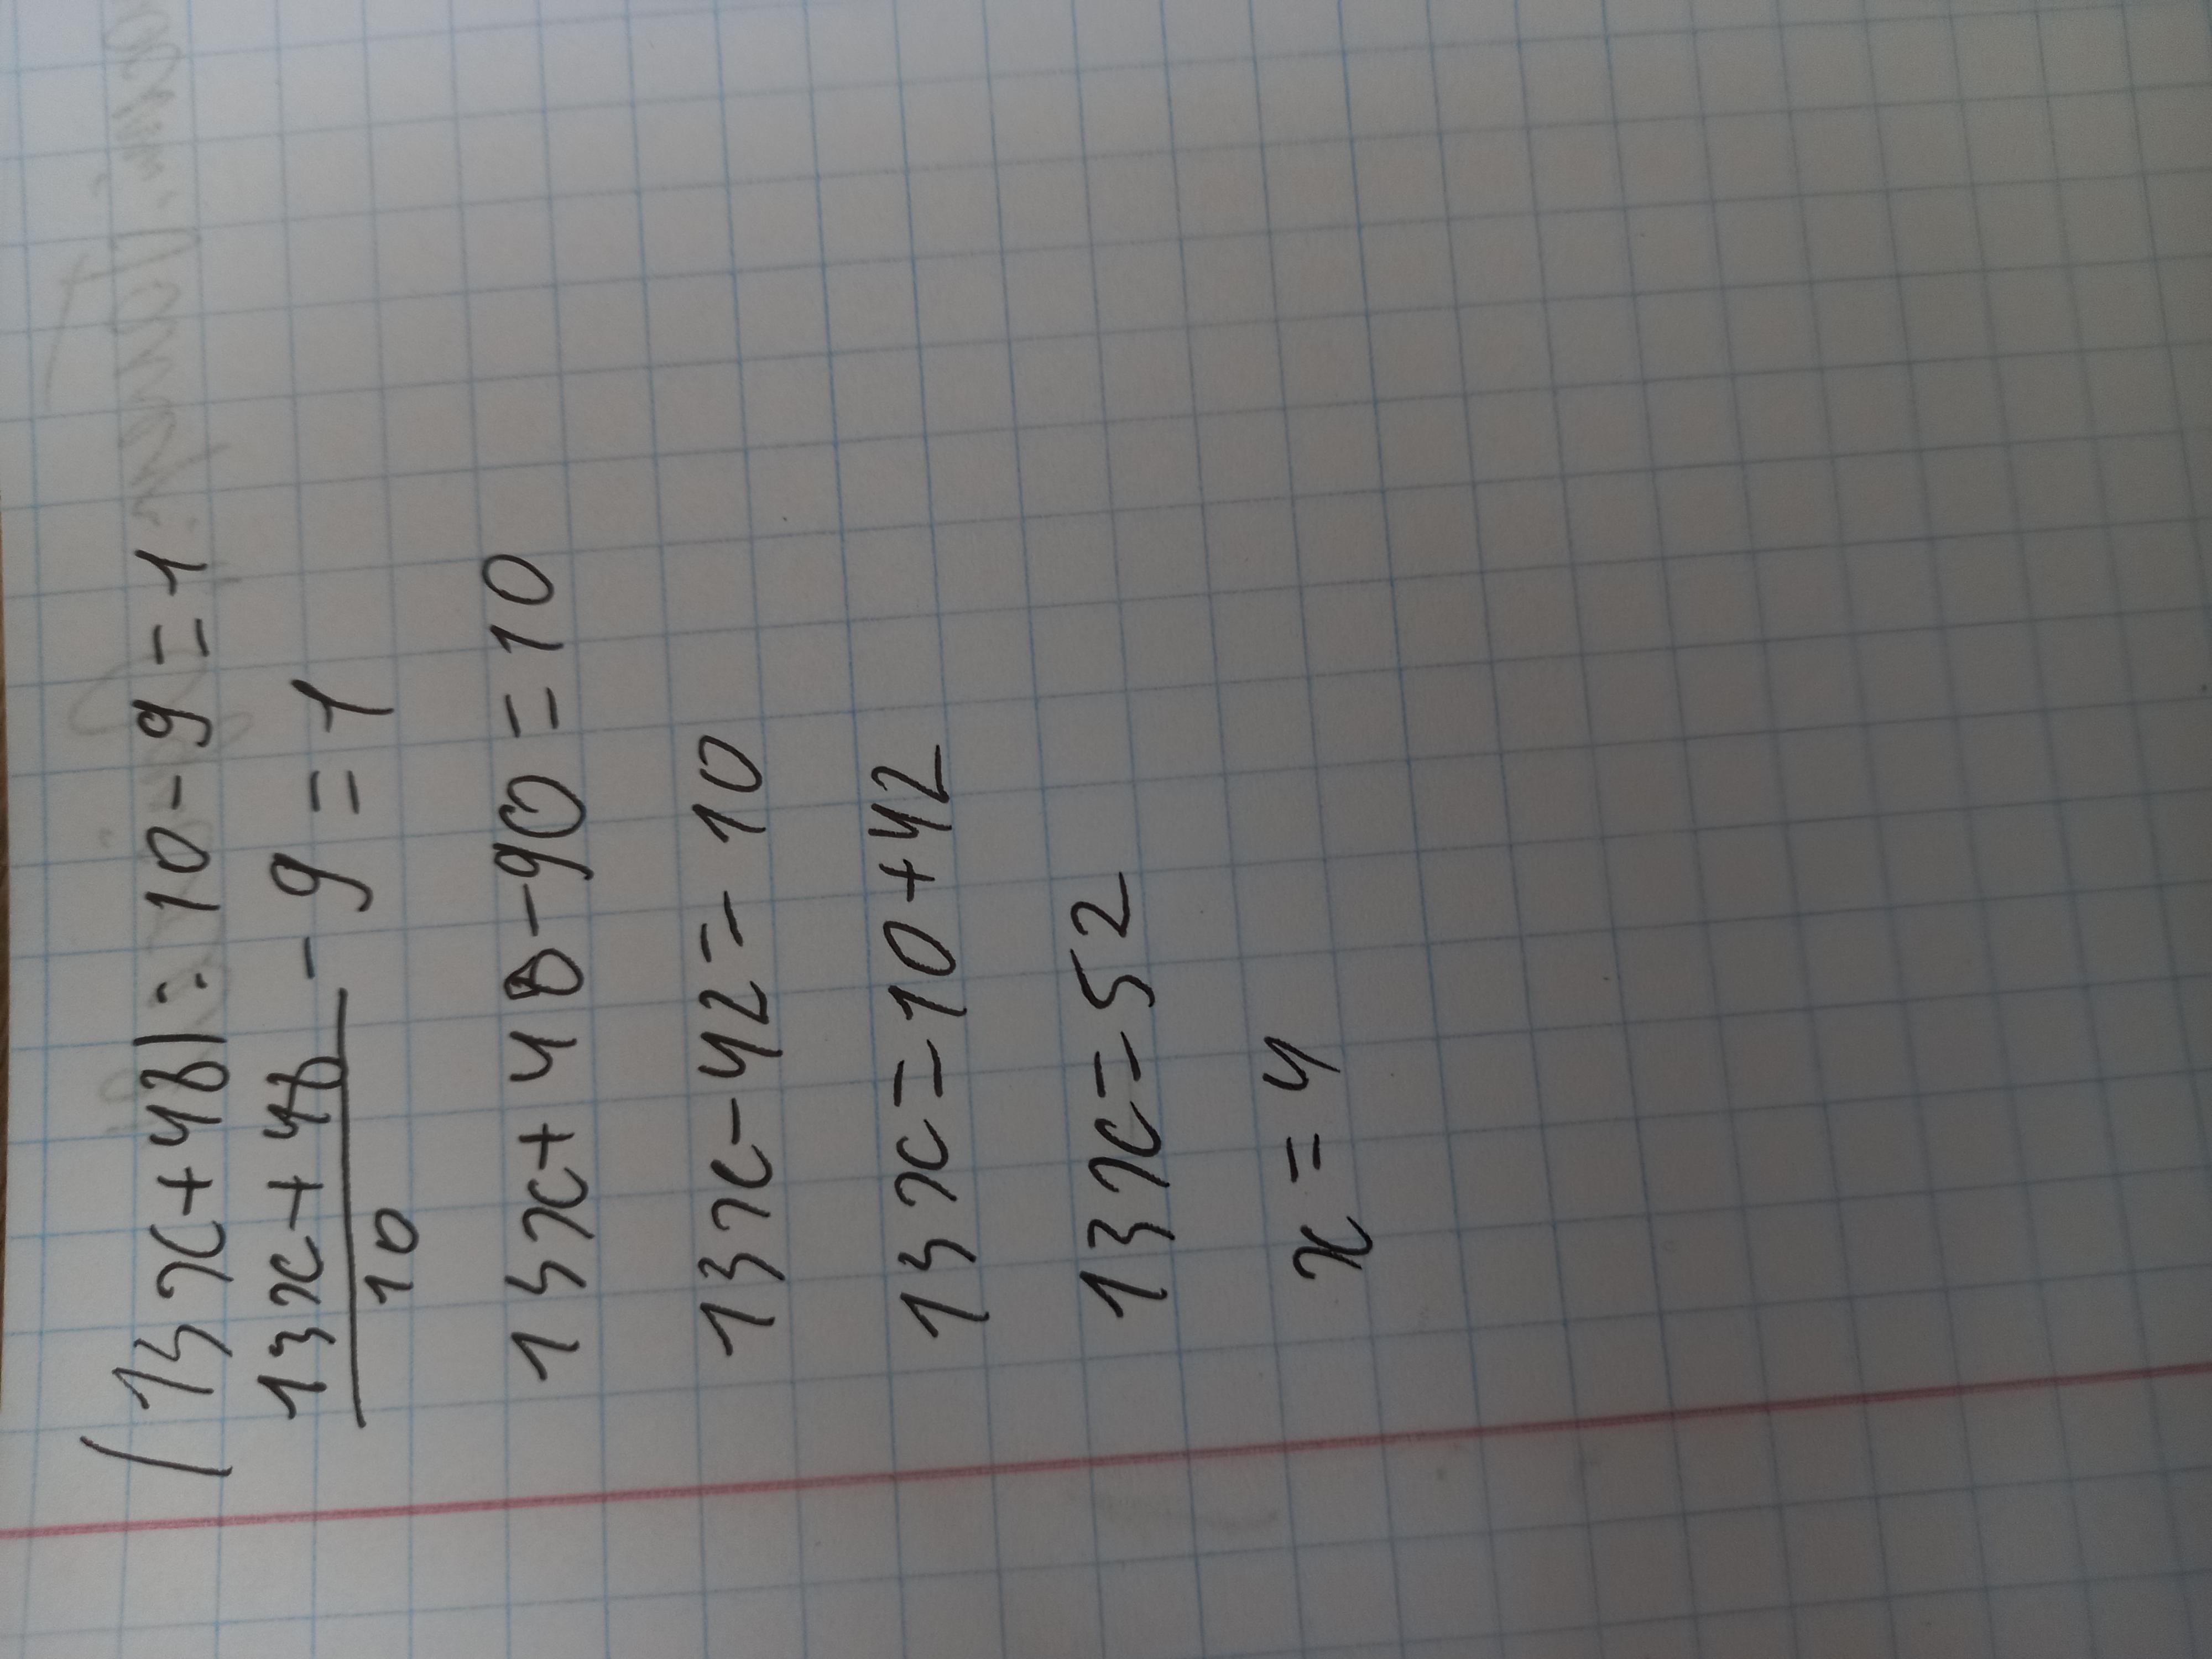 (13x+48):10-9=1
13x+48/10 - 9 = 1
13x+48-90=10
13x-42=10
13x=10+42
13x=52
x=4